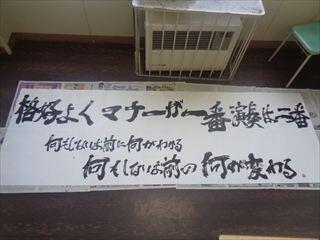 格好よくマナーが一番演奏は二番
何もしないお前に何がわかる
何もしないお前の何が変わる。